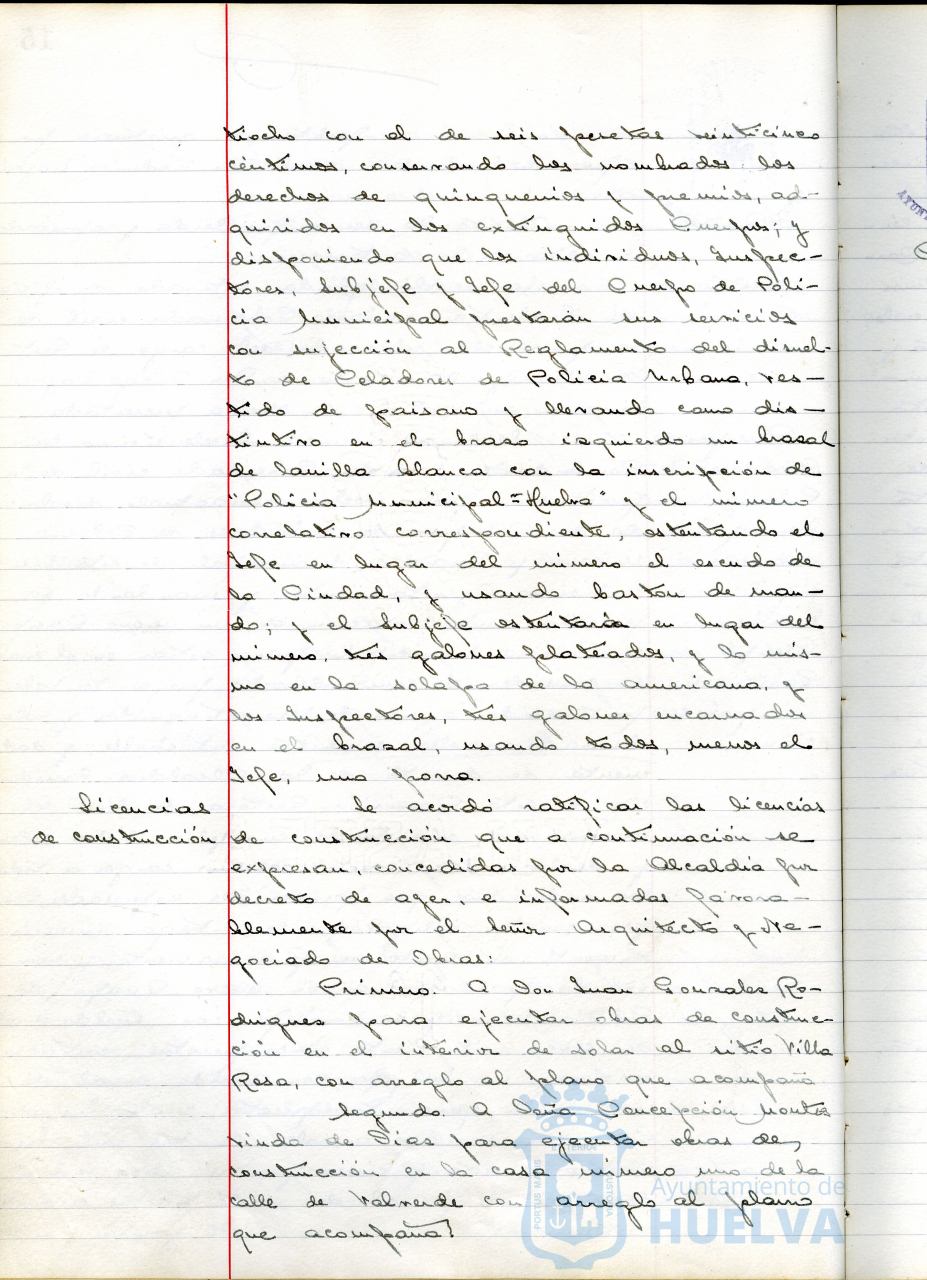 tiocho con el de seis pesetas veinticinco
céntimos, conservando los nombrados los
derechos de quinquenios y premios, ad-
quiridos en los extinguidos Cuerpos; y
disponiendo que los individuos, Inspec-
tores, Subjefe y Jefe del Cuerpo de Poli-
cia Municipal prestarán sus servicios
con sujección al Reglamento del disuel-
to de Celadores de Policia Urbana, ves-
tido de paisano y llevando como dis-
tintivo en el brazo izquierdo un brazal
de lanilla blanca con la inscripción de
"Policia Municipal=Huelva" y el número
correlativo correspondiente, ostentando el
Jefe en lugar del número el escudo de
la Ciudad, y usando bastón de man-
do; y el Subjefe ostentaria en lugar del
número, tres galones plateados, y lo mis-
mo en la solapa de la americana, y
los Inspectores, tres galones encarnados
en el brazal, usando todos, menos el
Jefe, una porra.
Licencias
de construcción
Se acordó ratificar las licencias
de construcción que a continuación se
expresan, concedidas por la Alcaldia por
decreto de ayer, e informadas favora-
blemente por el Señor Arquitecto y Ne-
gociado de Obras:
Primero. A Don Juan Gonzalez Ro-
driguez para ejecutar obras de construc-
ción en el interior de solar al sitio Villa
Rosa, con arreglo al plano que acompaña
Segundo. A Doña Concepción Montes
viuda de Dias para ejecutar obras de
construcción en la casa número uno de la
calle de Valverde con arreglo al plano
que acompaña.
PORTUS MARIS
CUSTODIA
Ayuntamiento de
HUELVA